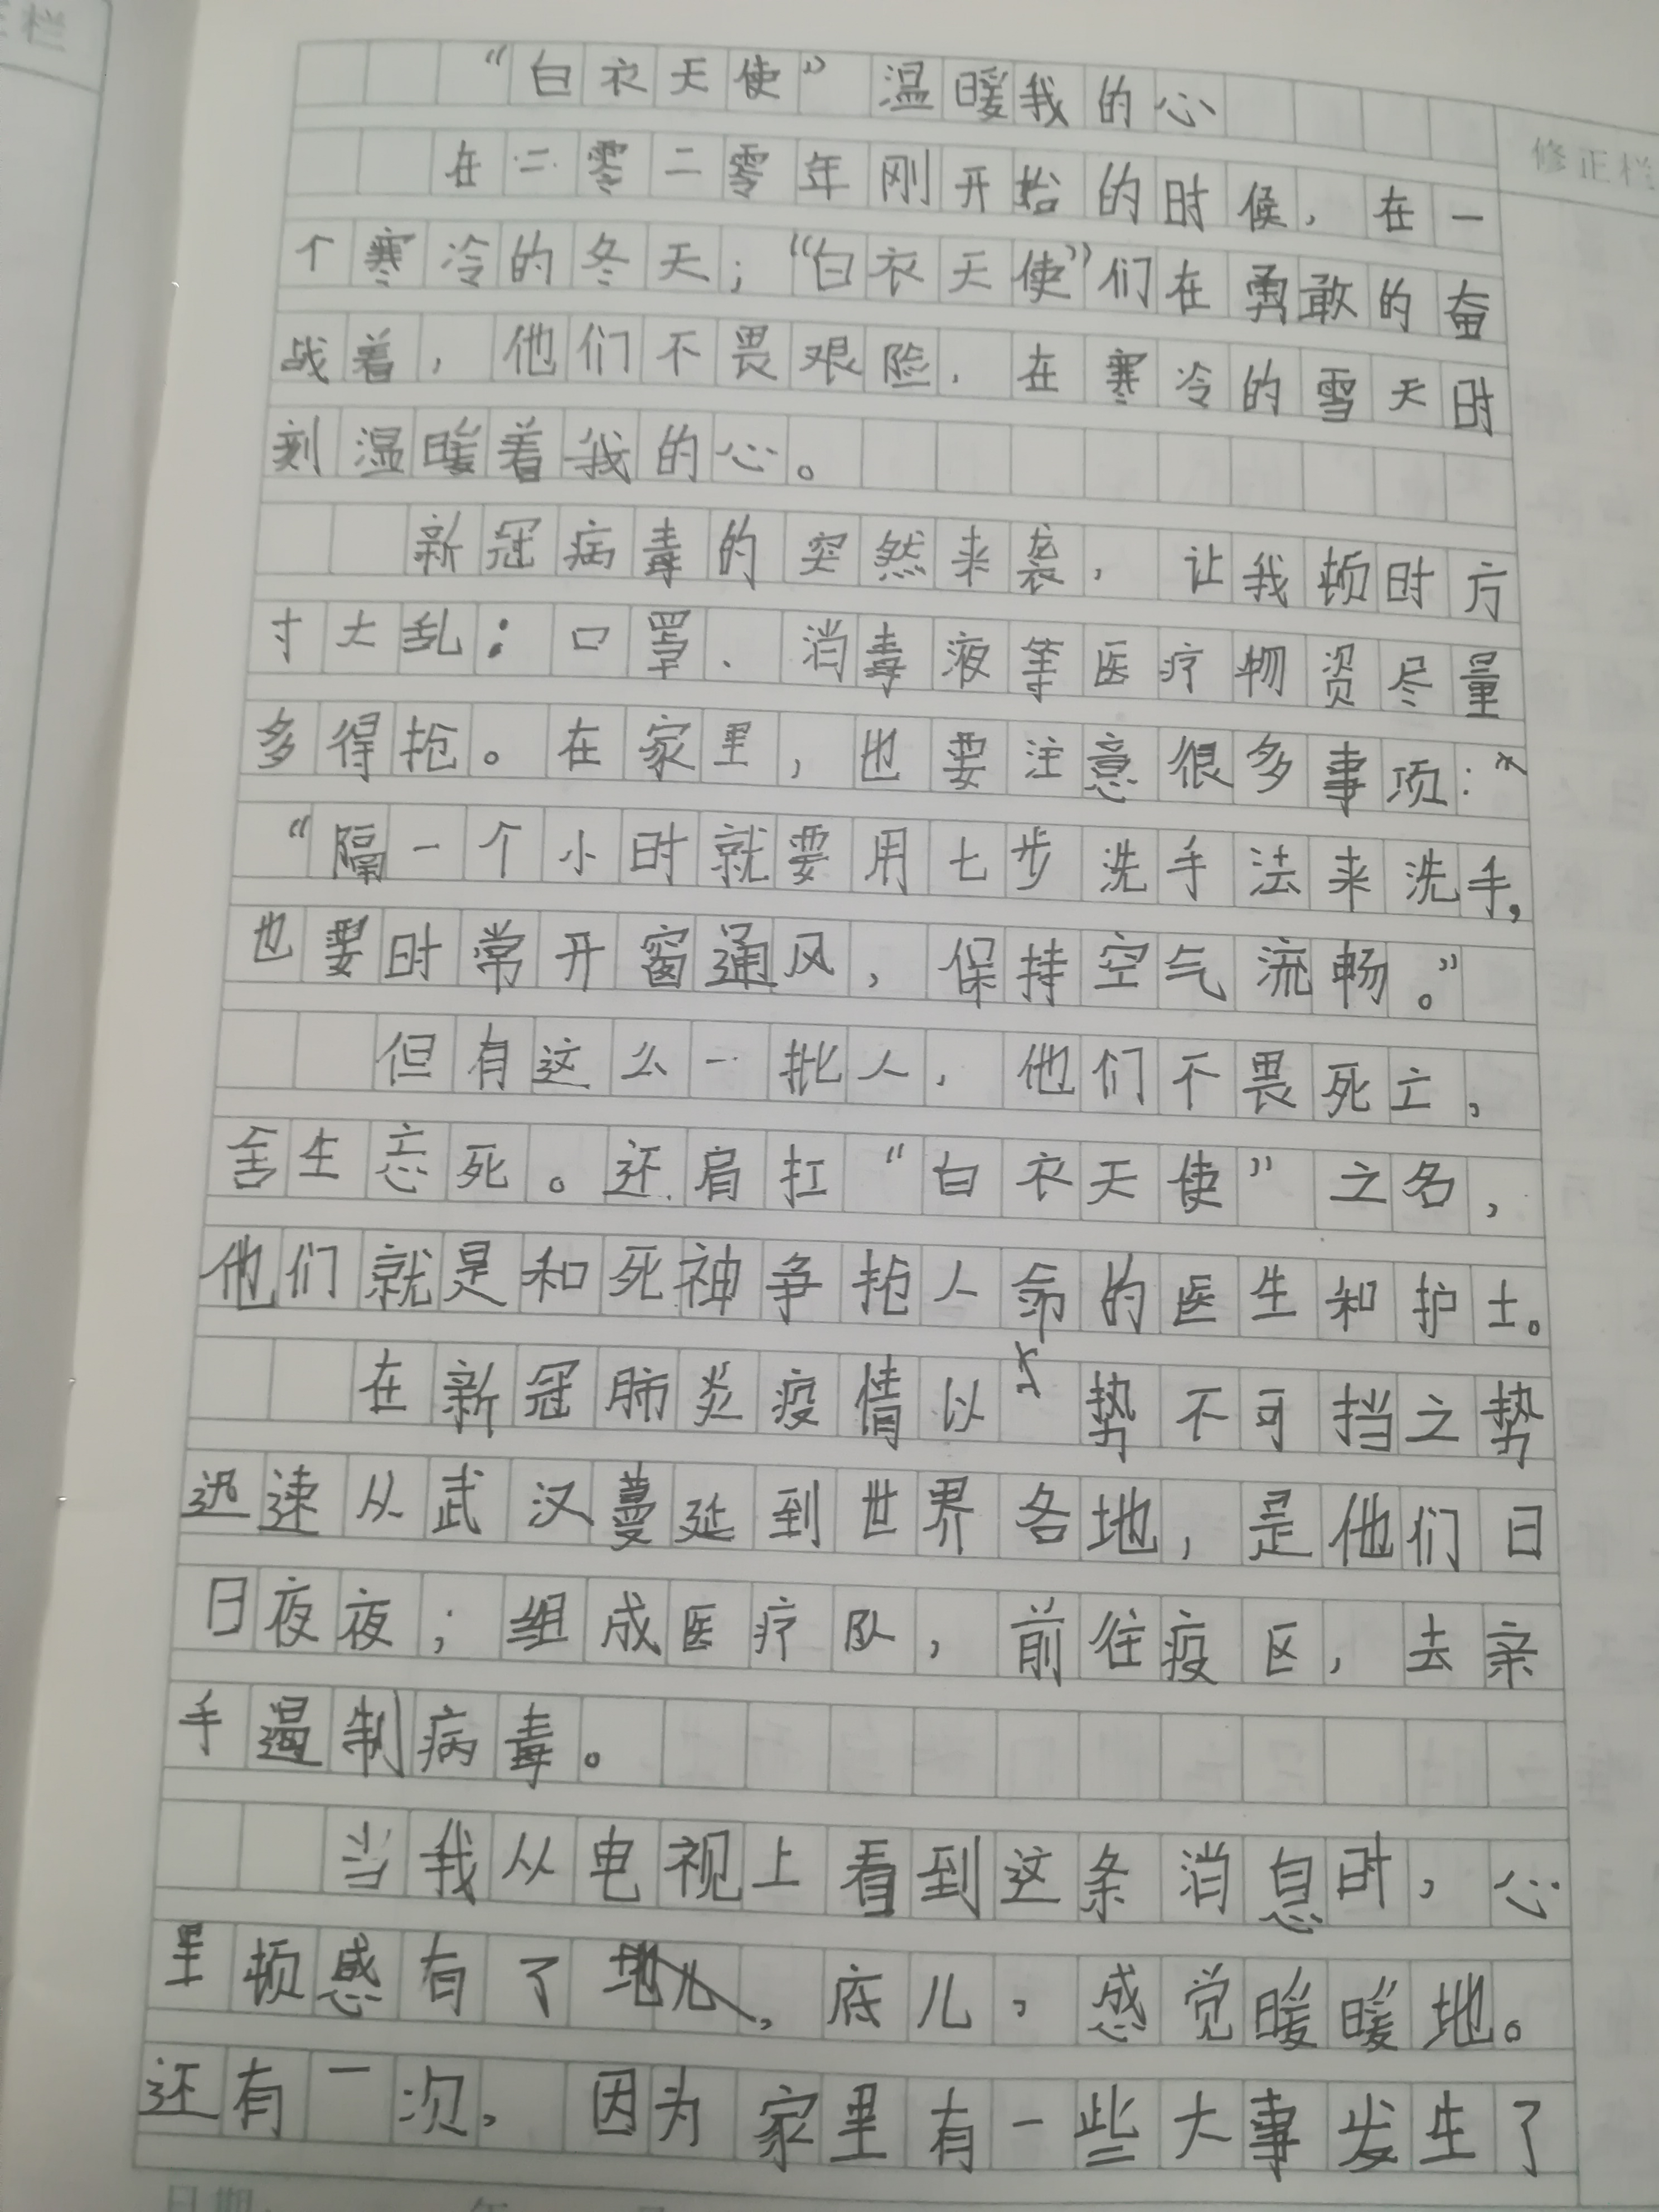 正栏
修正栏
“白衣天使”温暖我的心
在二零二零年刚开始的时候，在一
个寒冷的冬天；“白衣天使”们在勇敢的奋
战着，他们不畏艰险，在寒冷的雪天时
刻温暖着我的心。
新冠病毒的突然来袭，让我顿时方
寸大乱：口罩、消毒液等医疗物资尽量
多得抢。在家里，也要注意很多事项：
“隔一个小时就要用七步洗手法来洗手，
也要时常开窗通风，保持空气流畅。”
但有这么一批人，他们不畏死亡，
舍生忘死。还肩扛“白衣天使”之名，
他们就是和死神争抢人命的医生和护士。
在新冠肺炎疫情以势不可挡之势
迅速从武汉蔓延到世界各地，是他们日
日夜夜；组成医疗队，前往疫区，去亲
手遏制病毒。
当我从电视上看到这条消息时，心
里顿感有了底儿，感觉暖暖地。
还有一次，因为家里有一些大事发生了
日期：